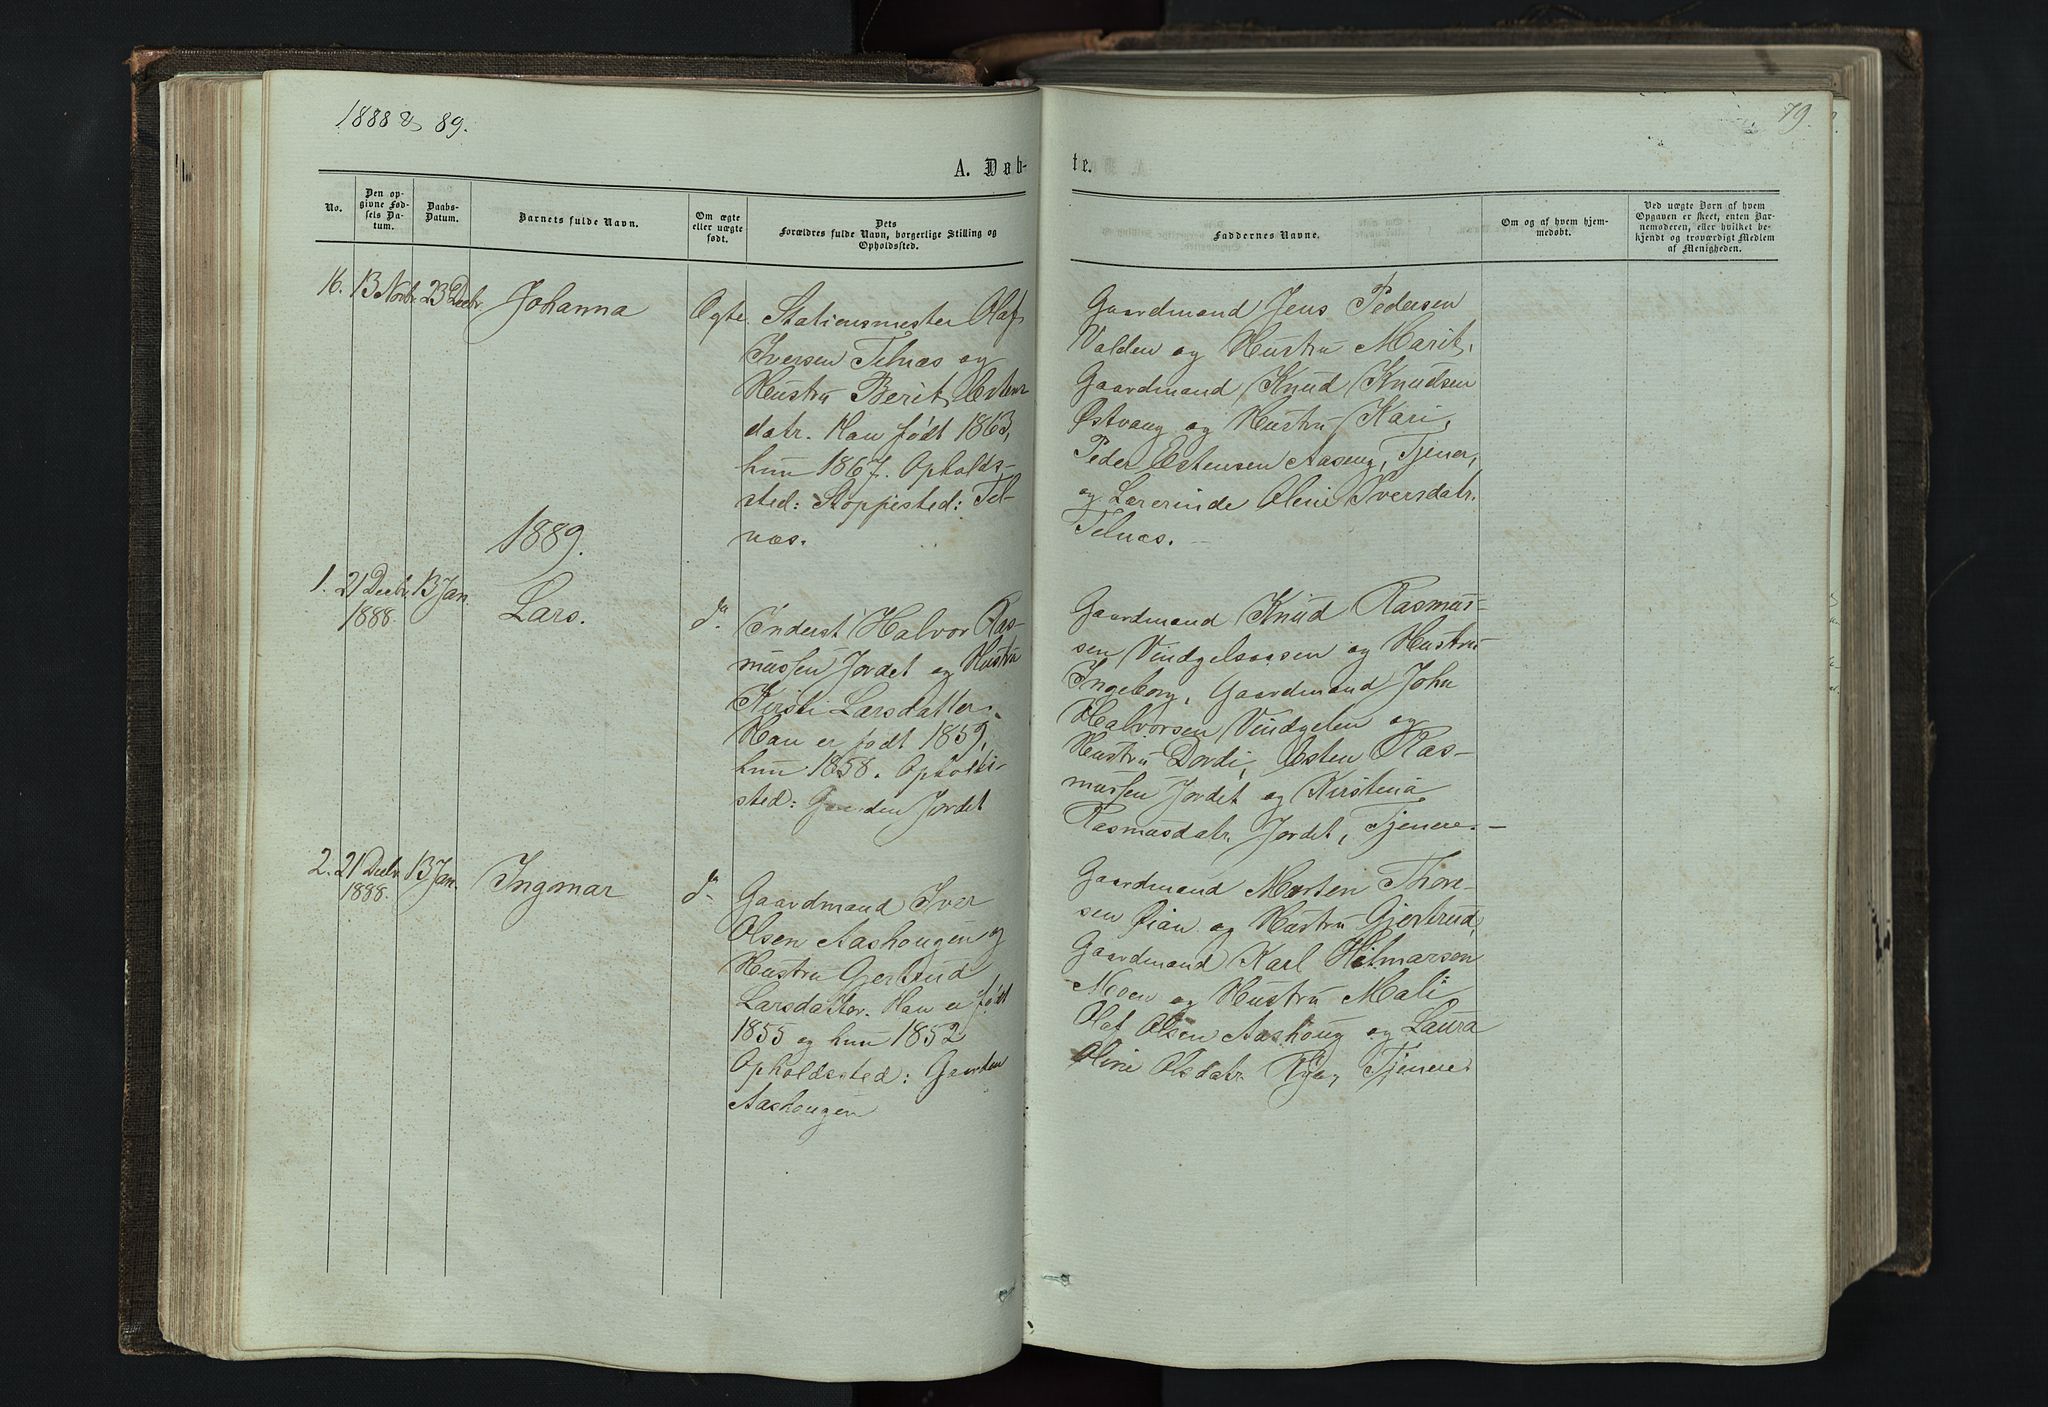 1888 & 89.
79.
A. Døb-
te.
No.
Den op-
givne Fød-
sels Da-
tum.
Daabs-
Datum.
Barnets fulde Navn.
Om ægte
eller uægte
født.
Dets
Forældres fulde Navn, borgerlige Stilling og
Opholdssted.
Faddernes Navne.
Om og af hvem hjem-
medøbt.
Ved uægte Børn af hvem
Opgaven er skeet, enten Bar-
nemoderen, eller hvilket be-
kjendt og troværdigt Medlem
af Menigheden.
16. 13 Novbr. 23 Decbr.
Johanna
Ægte.
Stationsmester Olaf
Iversen Telnæs og
Hustru Berit Esten-
datr. Han født 1863,
hun 1867. Opholds-
sted: Stoppested: Tel-
næs.
Gaardmand Jens Pedersen
Volden og Hustru Marit,
Gaardmand Knud Knudsen
Østvang og Hustru Kari,
Peder Estensen Aaseng, Tjener,
og Lærerinde Oline Iversdatr.
Telnæs.
1889.
1. 21 Decbr. 13 Jan.
1888.
Lars.
do.
Inderst Halvor Ras-
mussen Jordet og Hustru
Kirsti Larsdatter.
Han er født 1859,
hun 1858. Opholds-
sted: Gaarden Jordet
Gaardmand Knud Rasmus-
sen Vindgelsaasen og Hustru
Ingeborg, Gaardmand John
Halvorsen Vindgelen og
Hustru Dordi, Esten Ras-
mussen Jordet og Kirstina
Rasmusdatr. Jordet, Tjenere.
2. 21 Decbr. 13 Jan.
1888.
Ingmar
do.
Gaardmand Iver
Olsen Aashougen og
Hustru Gjertrud
Larsdatter. Han er født
1855 og hun 1852
Opholdssted: Gaarden
Aashougen
Gaardmand Morten Thore-
sen Øian og Hustru Gjertrud,
Gaardmand Karl Hilmarsen
Moen og Hustru Mali
Olaf Olsen Aashoug og Laura
Oline Olsdatr. Tjenere